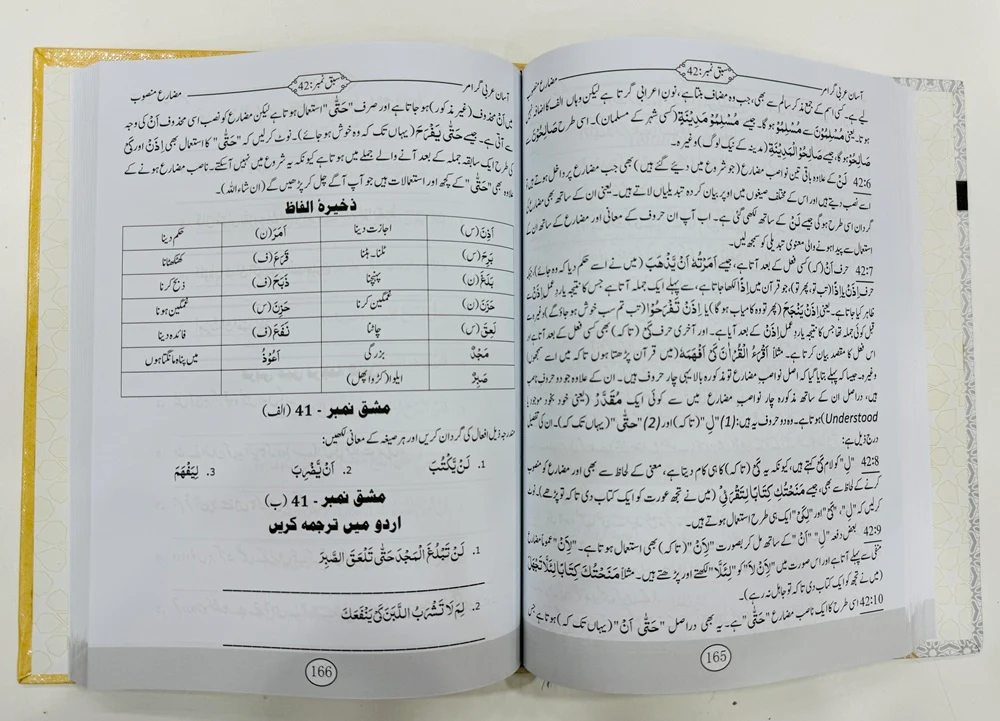 آسان عربی گرامر
سبق نمبر:42
مضارع منصوب
لیے ہے۔ کسی اسم کے جمع مذکر سالم سے بھی، جب وہ مضاف بنتا ہے، نونِ اعرابی گرتا ہے لیکن وہاں الف کا اضافہ نہیں
ہوتا۔ یعنی مُسْلِمُوْنَ سے مُسْلِمُوْ ہوگا۔ جیسے مُسْلِمُوْ مَدِیْنَةٍ (کسی شہر کے مسلمان)۔ اسی طرح صَالِحُوْنَ سے
صَالِحُوْ ہوگا، جیسے صَالِحُو الْمَدِیْنَةِ (مدینہ کے نیک لوگ) وغیرہ۔
42:6 لَنْ کے علاوہ باقی تین نواصبِ مضارع (جو شروع میں دیئے گئے ہیں) بھی جب مضارع پر داخل ہوتے ہیں
اسے نصب دیتے ہیں اور اس کے مختلف صیغوں میں اوپر بیان کردہ تبدیلیاں لاتے ہیں۔ یعنی ان کے ساتھ بھی مضارع
گردان اسی طرح ہوگی جیسی لَنْ کے ساتھ لکھی گئی ہے۔ اب آپ ان حروف کے معانی اور مضارع کے ساتھ ان کے
استعمال سے پیدا ہونے والی معنوی تبدیلی کو سمجھ لیں۔
42:7 حرف اَنْ (کہ) کسی فعل کے بعد آتا ہے، جیسے اَمَرْتُهٗ اَنْ يَّذْهَبَ (میں نے اسے حکم دیا کہ وہ جائے)۔
حرف اِذَنْ یا اِذًا (تب تو، پھر تو) جو قرآن میں اِذًا لکھا جاتا ہے، سے پہلے ایک جملہ آتا ہے جس کا نتیجہ یا ردِ عمل اِذَنْ
ظاہر کیا جاتا ہے۔ یعنی اِذَنْ يَّنْجَحَ (پھر تو وہ کامیاب ہوگا) یا اِذَنْ تَفْرَحُوْا (تب تم سب خوش ہو جاؤ گے) وغیرہ سے
قبل کوئی جملہ تھا جس کا نتیجہ یا ردِ عمل اِذَنْ کے بعد آیا ہے۔ اور آخری حرف کَیْ (تاکہ) بھی کسی فعل کے بعد آتا ہے اور
اس فعل کا مقصد بیان کرتا ہے۔ مثلاً اَقْرَءُ الْقُرْاٰنَ کَیْ اَفْهَمَهٗ (میں قرآن پڑھتا ہوں تاکہ میں اسے سمجھوں)
وغیرہ۔ جیسا کہ پہلے بتایا گیا کہ اصل نواصبِ مضارع تو مذکورہ بالا یہی چار حروف ہیں۔ ان کے علاوہ جو دو حروف ناصب
ہیں، دراصل ان کے ساتھ مذکورہ چار نواصبِ مضارع میں سے کوئی ایک مُقَدَّرْ (یعنی خود بخود موجود یا
Understood) ہوتا ہے۔ وہ دو حروف یہ ہیں: (1) "لِ" (تاکہ) اور (2) "حَتّٰی" (یہاں تک کہ)۔ ان کی تفصیل
درج ذیل ہے:
42:8 "لِ" کو لامِ کَیْ کہتے ہیں، کیونکہ یہ کَیْ (تاکہ) کا ہی کام دیتا ہے، معنی کے لحاظ سے بھی اور مضارع کو منصوب
کرنے کے لحاظ سے بھی، جیسے مَنَحْتُكِ کِتَابًا لِتَقْرَئِیْ (میں نے تجھ عورت کو ایک کتاب دی تاکہ تو پڑھے)۔ نوٹ
کرلیں کہ "لِ"، "کَیْ" اور "لِکَیْ" ایک ہی طرح استعمال ہوتے ہیں۔
42:9 بعض دفعہ "لِ" "اَنْ" کے ساتھ مل کر بصورت "لِاَنْ" (تاکہ) بھی استعمال ہوتا ہے۔ "لِاَنْ" عموماً مضارع
منفی سے پہلے آتا ہے اور اس صورت میں "لِاَنْ لَا" کو "لِئَلَّا" لکھتے اور پڑھتے ہیں۔ مثلاً مَنَحْتُكَ کِتَابًا لِئَلَّا تَجْهَلَ
(میں نے تجھ کو ایک کتاب دی تاکہ تو جاہل نہ رہے)۔
42:10 اسی طرح کا ایک ناصبِ مضارع "حَتّٰی" ہے۔ یہ بھی دراصل "حَتّٰی اَنْ" (یہاں تک کہ) ہوتا ہے جس
165
آسان عربی گرامر
سبق نمبر:42
مضارع منصوب
میں اَنْ محذوف (غیر مذکور) ہو جاتا ہے اور صرف "حَتّٰی" استعمال ہوتا ہے لیکن مضارع کو نصب اسی محذوف اَنْ کی وجہ
سے آتی ہے، جیسے حَتّٰی يَفْرَحَ (یہاں تک کہ وہ خوش ہو جائے)۔ نوٹ کرلیں کہ "حَتّٰی" کا استعمال بھی اِذَنْ اور کَیْ
کی طرح ایک سابقہ جملہ کے بعد آنے والے جملے میں ہوتا ہے کیونکہ یہ شروع میں نہیں آسکتے۔ ناصبِ مضارع ہونے کے
علاوہ بھی "حَتّٰی" کے کچھ اور استعمالات ہیں جو آپ آگے چل کر پڑھیں گے (ان شاء اللہ)۔
ذخیرۂ الفاظ
اَذِنَ (س) اجازت دینا اَمَرَ (ن) حکم دینا
بَرِحَ (س) ٹلنا۔ ہٹنا قَرَعَ (ف) کھٹکھٹانا
بَلَغَ (ن) پہنچنا ذَبَحَ (ف) ذبح کرنا
حَزَنَ (ن) غمگین کرنا حَزِنَ (س) غمگین ہونا
لَعِقَ (س) چاٹنا نَفَعَ (ف) فائدہ دینا
مَجْدٌ بزرگی اَعُوْذُ میں پناہ مانگتا ہوں
صَبِرٌ ایلوا (کڑوا پھل)
مشق نمبر - 41 (الف)
مندرجہ ذیل افعال کی گردان کریں اور ہر صیغہ کے معانی لکھیں:
1. لَنْ يَّكْتُبَ 2. اَنْ يَّضْرِبَ 3. لِيَفْهَمَ
مشق نمبر - 41 (ب)
اردو میں ترجمہ کریں
1. لَنْ تَبْلُغَ الْمَجْدَ حَتّٰی تَلْعَقَ الصَّبِرَ
2. لِمَ لَا تَشْرَبُ اللَّبَنَ كَيْ يَنْفَعَكَ
166